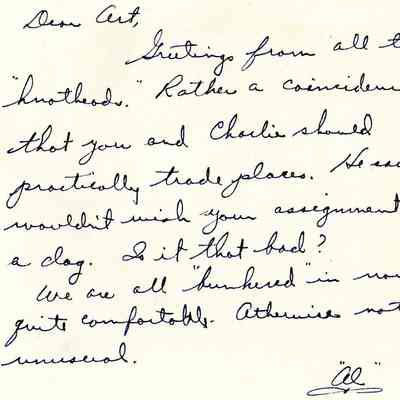 Dear Art,
Greetings from all t
"knotheads." Rather a coinciden
that you and Charlie should
practically trade places. He sa
wouldn't wish your assignment
a dog. Is it that bad?
We are all "bunkered" in now
quite comfortable. Otherwise not
unusual.
"Al"